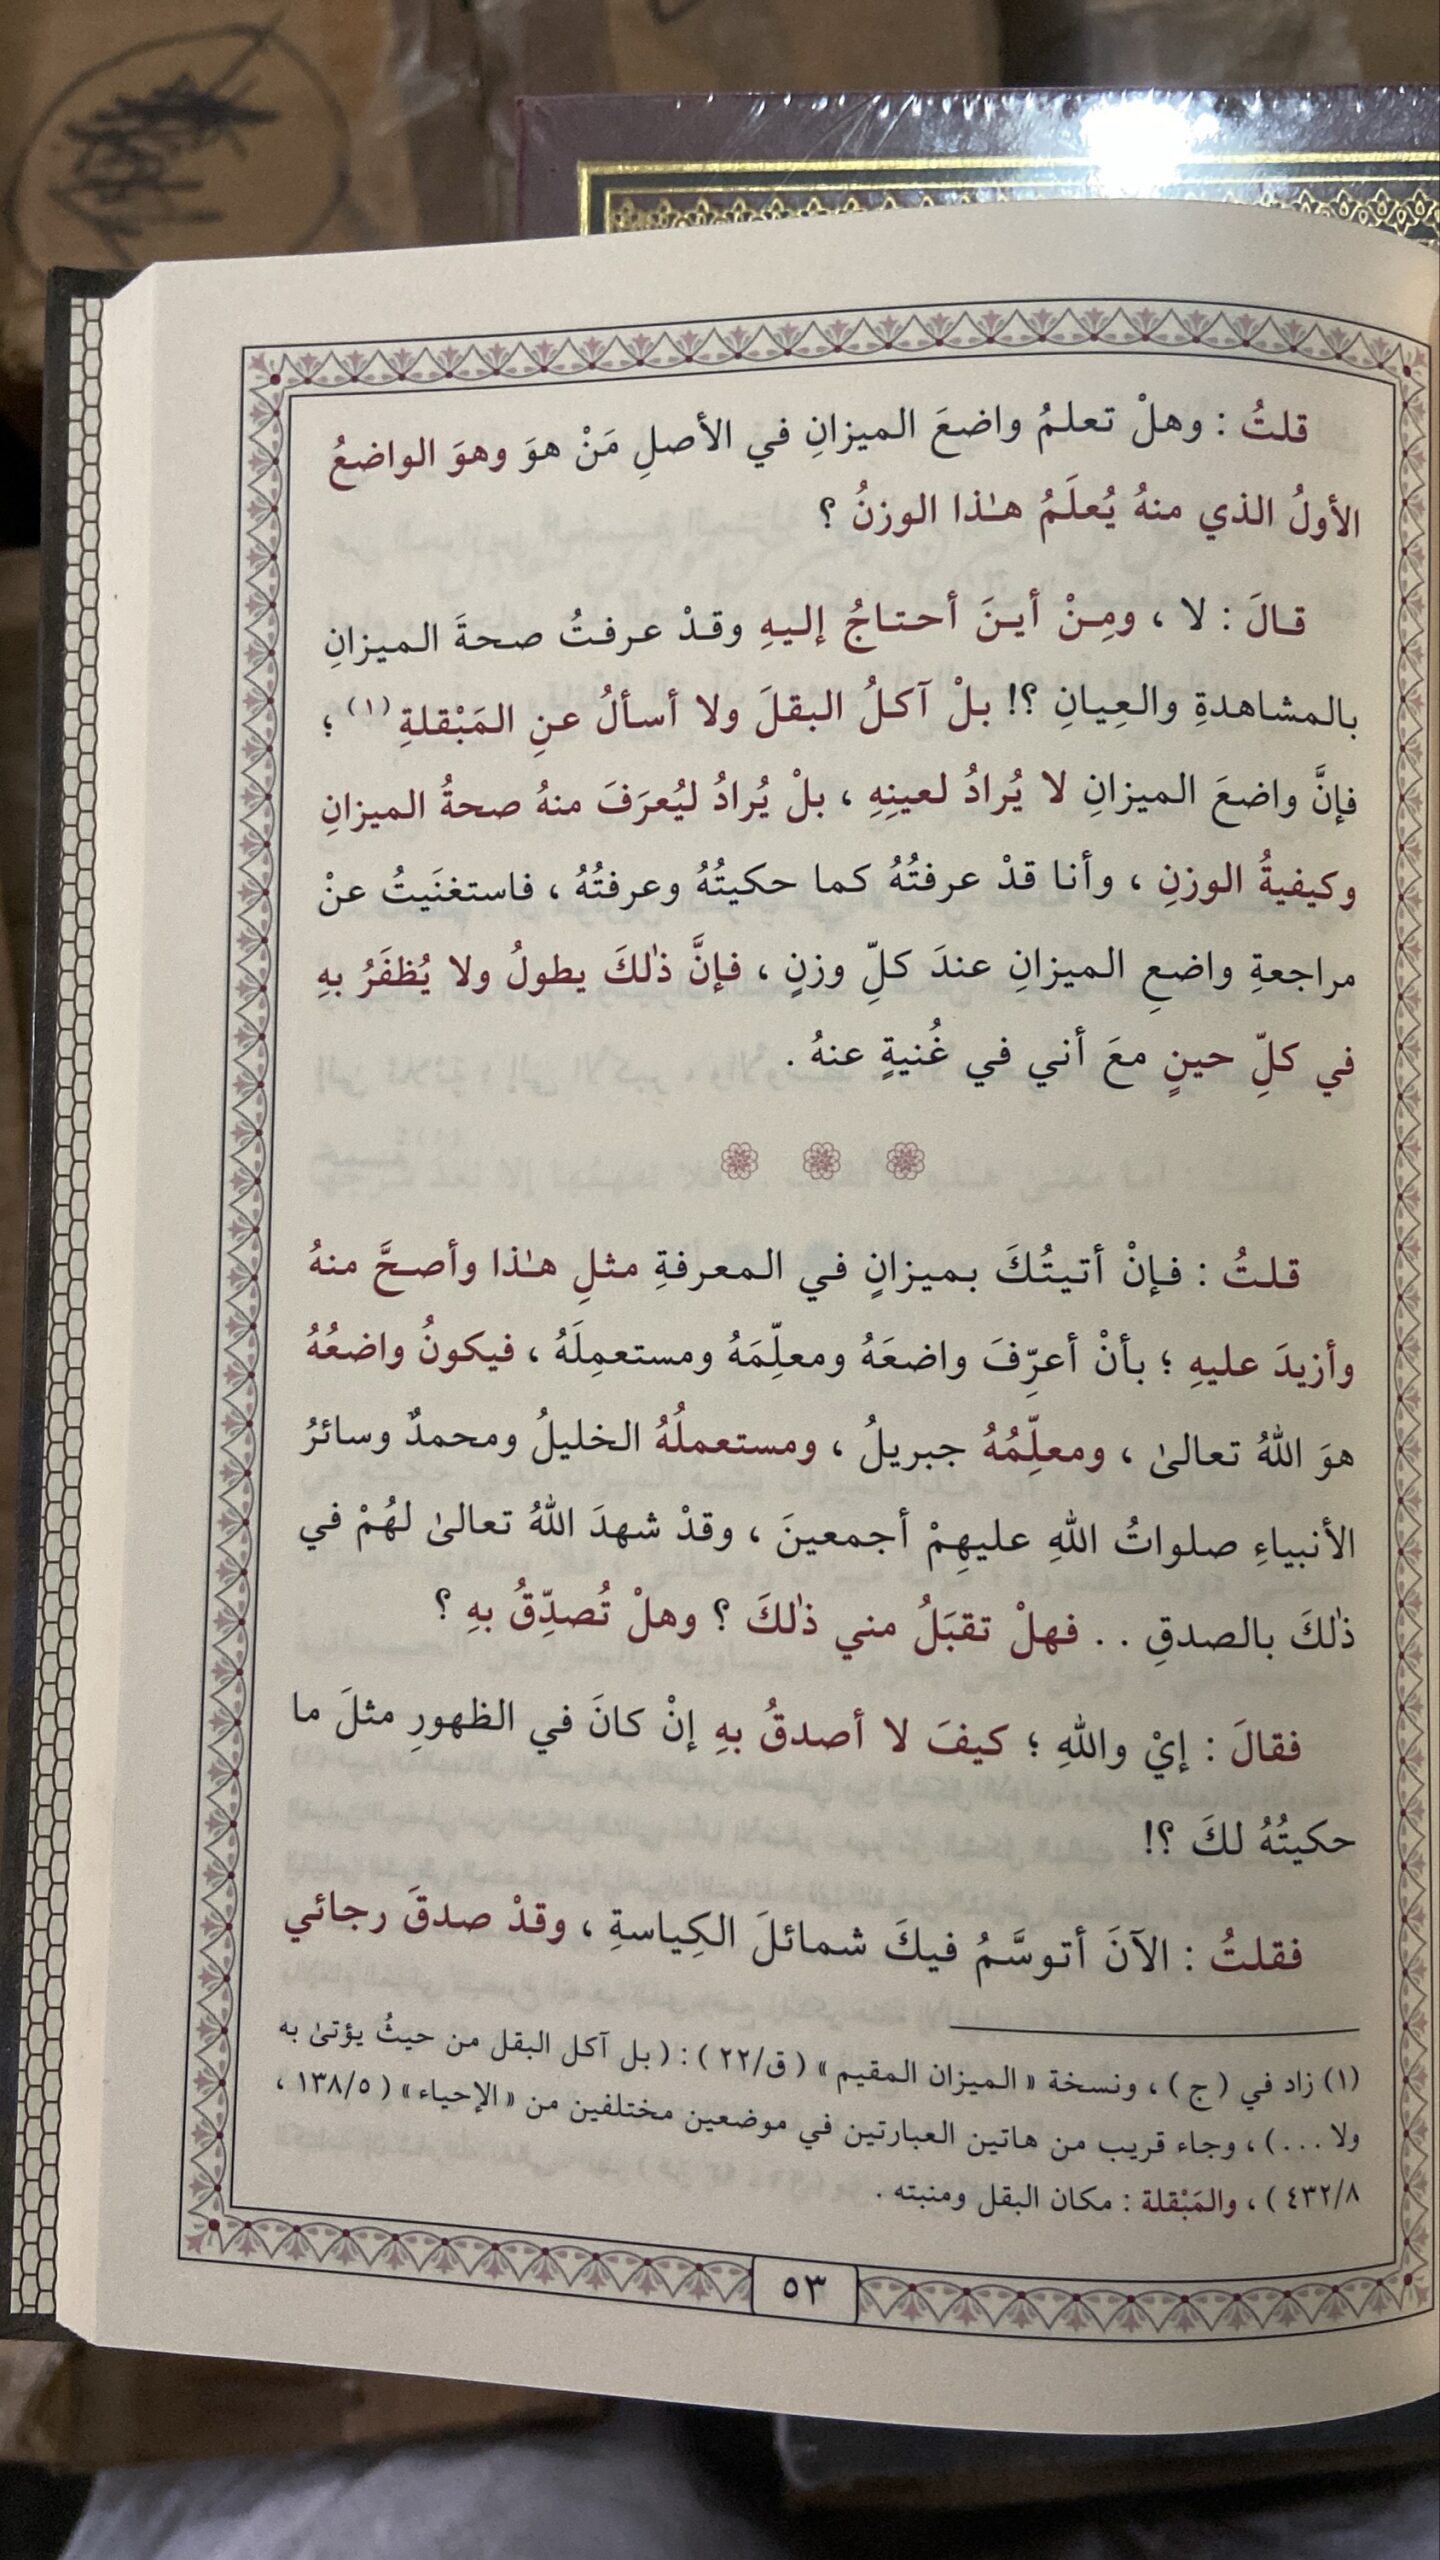 قلتُ : وهلْ تعلمُ واضعَ الميزانِ في الأصلِ مَنْ هوَ وهوَ الواضعُ
الأولُ الذي منهُ يُعلَمُ هـٰذا الوزنُ ؟
قالَ : لا ، ومِنْ أينَ أحتاجُ إليهِ وقدْ عرفتُ صحةَ الميزانِ
بالمشاهدةِ والعِيانِ ؟! بلْ آكلُ البقلَ ولا أسألُ عنِ المَبْقلةِ(١) ؛
فإنَّ واضعَ الميزانِ لا يُرادُ لعينِهِ ، بلْ يُرادُ ليُعرَفَ منهُ صحةُ الميزانِ
وكيفيةُ الوزنِ ، وأنا قدْ عرفتُهُ كما حكيتُهُ وعرفتُهُ ، فاستغنَيتُ عنْ
مراجعةِ واضعِ الميزانِ عندَ كلِّ وزنٍ ، فإنَّ ذٰلكَ يطولُ ولا يُظفَرُ بهِ
في كلِّ حينٍ معَ أني في غُنيةٍ عنهُ .
قلتُ : فإنْ أتيتُكَ بميزانٍ في المعرفةِ مثلِ هـٰذا وأصحَّ منهُ
وأزيدَ عليهِ ؛ بأنْ أعرِّفَ واضعَهُ ومعلِّمَهُ ومستعمِلَهُ ، فيكونُ واضعُهُ
هوَ اللهُ تعالىٰ ، ومعلِّمُهُ جبريلُ ، ومستعملُهُ الخليلُ ومحمدٌ وسائرُ
الأنبياءِ صلواتُ اللهِ عليهِمْ أجمعينَ ، وقدْ شهدَ اللهُ تعالىٰ لهُمْ في
ذٰلكَ بالصدقِ . . فهلْ تقبَلُ مني ذٰلكَ ؟ وهلْ تُصدِّقُ بهِ ؟
فقالَ : إيْ واللهِ ؛ كيفَ لا أصدقُ بهِ إنْ كانَ في الظهورِ مثلَ ما
حكيتُهُ لكَ ؟!
فقلتُ : الآنَ أتوسَّمُ فيكَ شمائلَ الكِياسةِ ، وقدْ صدقَ رجائي
(١) زاد في ( ج ) ، ونسخة « الميزان المقيم » ( ق/٢٢ ) : ( بل آكل البقل من حيثُ يؤتىٰ به
ولا ... ) ، وجاء قريب من هاتين العبارتين في موضعين مختلفين من « الإحياء » ( ١٣٨/٥ ،
٤٣٢/٨ ) ، والمَبْقلة : مكان البقل ومنبته .
٥٣